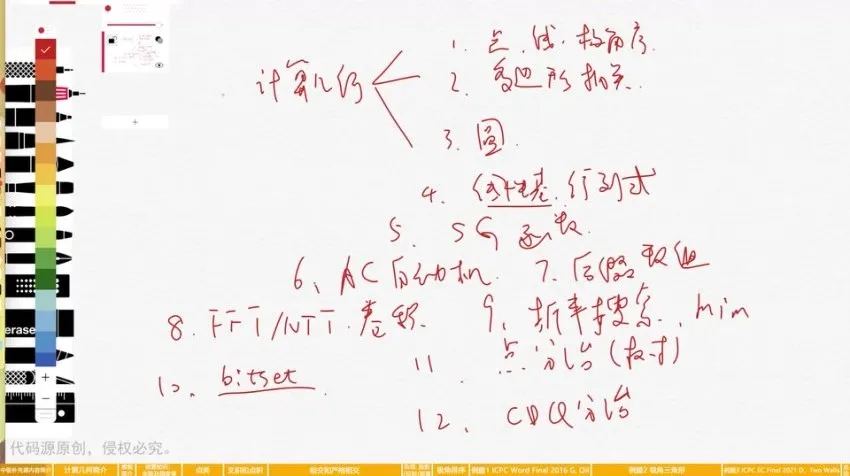 计算几何
1. 点、线、极角序.
2. 多边形相关.
3. 圆.
4. 线性基.行列式
5. SG函数.
6、AC自动机. 7. 后缀数组
8. FFT/NTT.卷积. 9、折半搜索、mim
10、bitset 11. 点分治(技巧)
12、CDQ分治
erase
代码源原创，侵权必究。
计算几何简介 点类 叉积和点积 极角排序 例题1 ICPC Word Final 2016 G, Oil 例题2 极角三角形 例题3 ICPC EC Final 2021 D, Two Walls